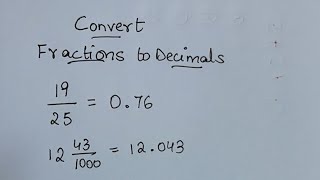 Convert
Fractions to Decimals
19/25 = 0.76
12 43/1000 = 12.043